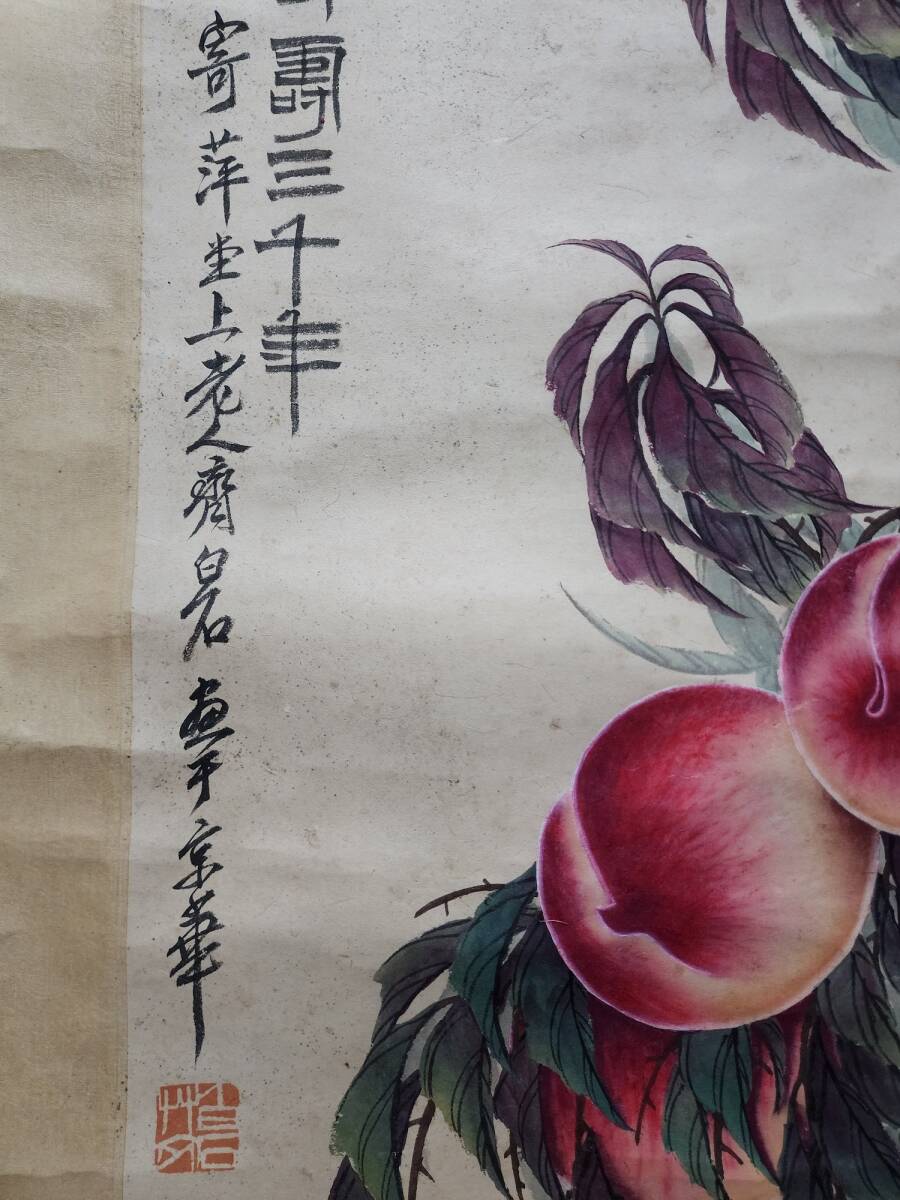 壽三千年
寄萍堂上老人齊白石畫于京華